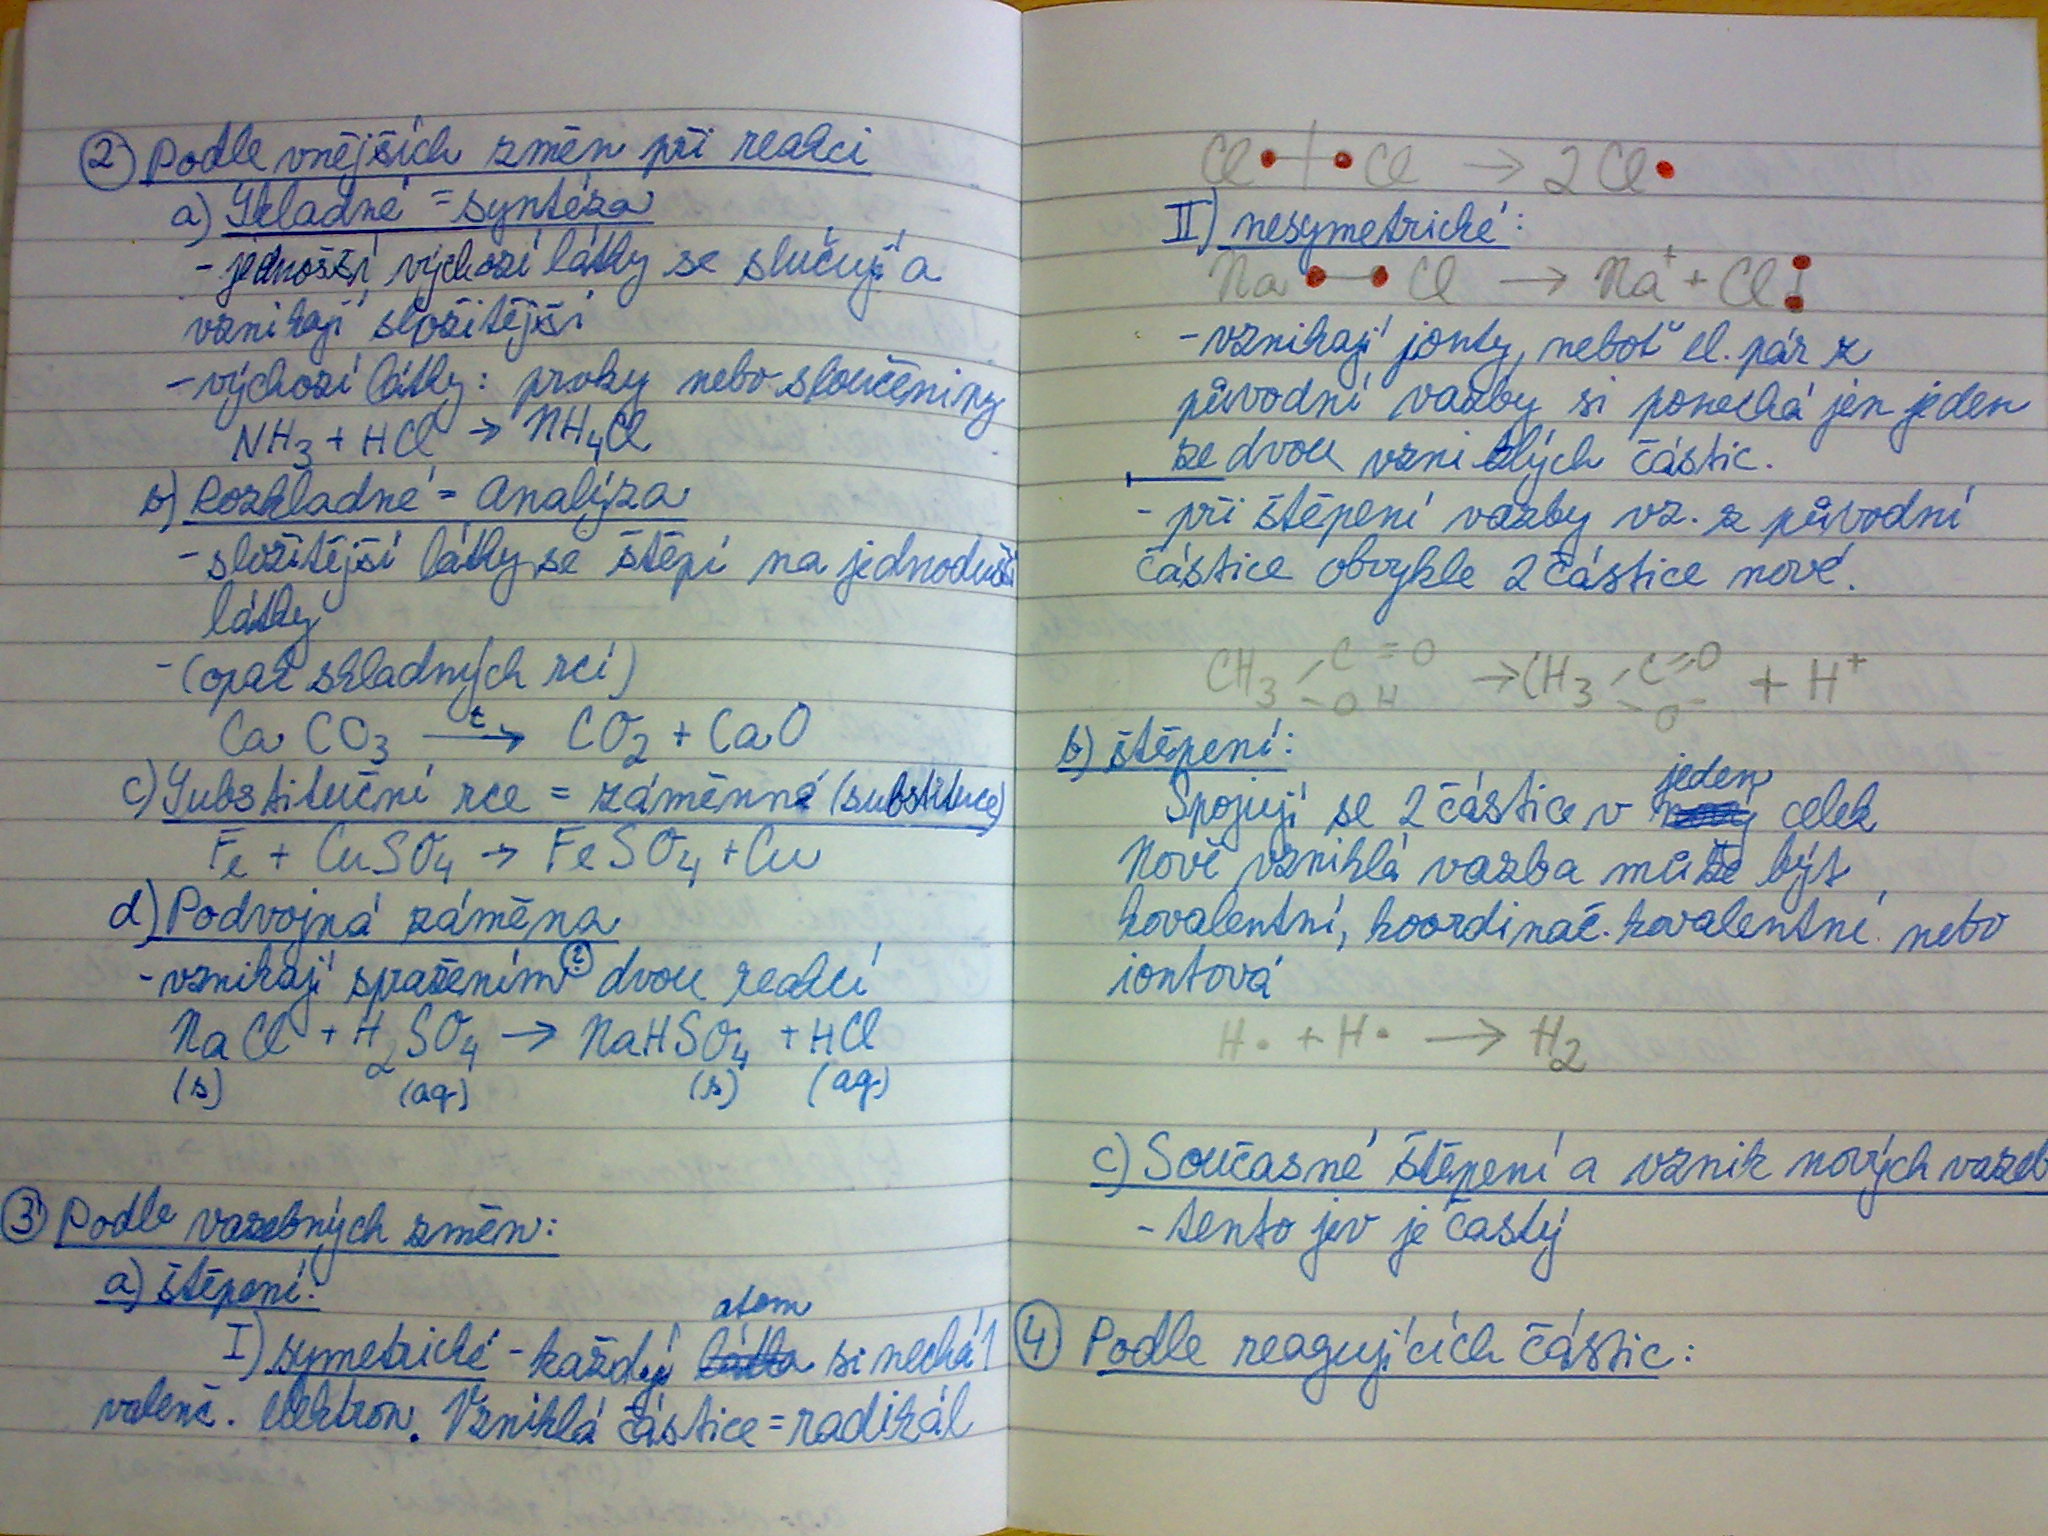 2 Podle vnějších změn při reakci
a) Skladné = syntéza
- jednošší výchozí látky se slučují a
vznikají složitější
- výchozí látky: prvky nebo sloučeniny
NH3 + HCl → NH4Cl
b) Rozkladné = analýza
- složitější látky se štěpí na jednodušší
látky
- (opak skladných rcí)
CaCO3 t→ CO2 + CaO
c) Substituční rce = záměnná (substituce)
Fe + CuSO4 → FeSO4 + Cu
d) Podvojná záměna
- vznikají spražením dvou reakcí
NaCl + H2SO4 → NaHSO4 + HCl
(s) (aq) (s) (aq)
3 Podle vazebných změn:
a) štěpení:
atom
I) symetrické - každý látka si nechá 1
valenč. elektron. Vzniklá částice = radikál
Cl• | •Cl → 2 Cl•
II) nesymetrické:
Na •–• Cl → Na+ + Cl
- vznikají jonty, neboť el. pár z
původní vazby si ponechá jen jeden
ze dvou vzniklých částic.
- při štěpení vazby vz. z původní
částice obvykle 2 částice nové.
CH3 C = O OH → CH3 C = O O- + H+
b) štěpení:
jeden
Spojují se 2 částice v celek
Nově vzniklá vazba může být
kovalentní, koordinač. kovalentní nebo
iontová
H• + H• → H2
c) Současné štěpení a vznik nových vazeb
- tento jev je častý
4 Podle reagujících částic: